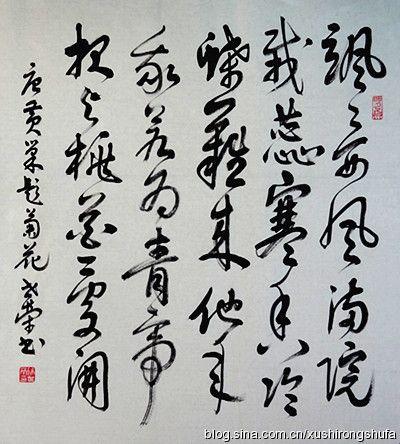 飒々西风满院
栽蕊寒香冷
蝶难来他年
我若为青帝
报与桃花一处开
唐黄巢题菊花 世荣书
blog.sina.com.cn/xushirongshufa